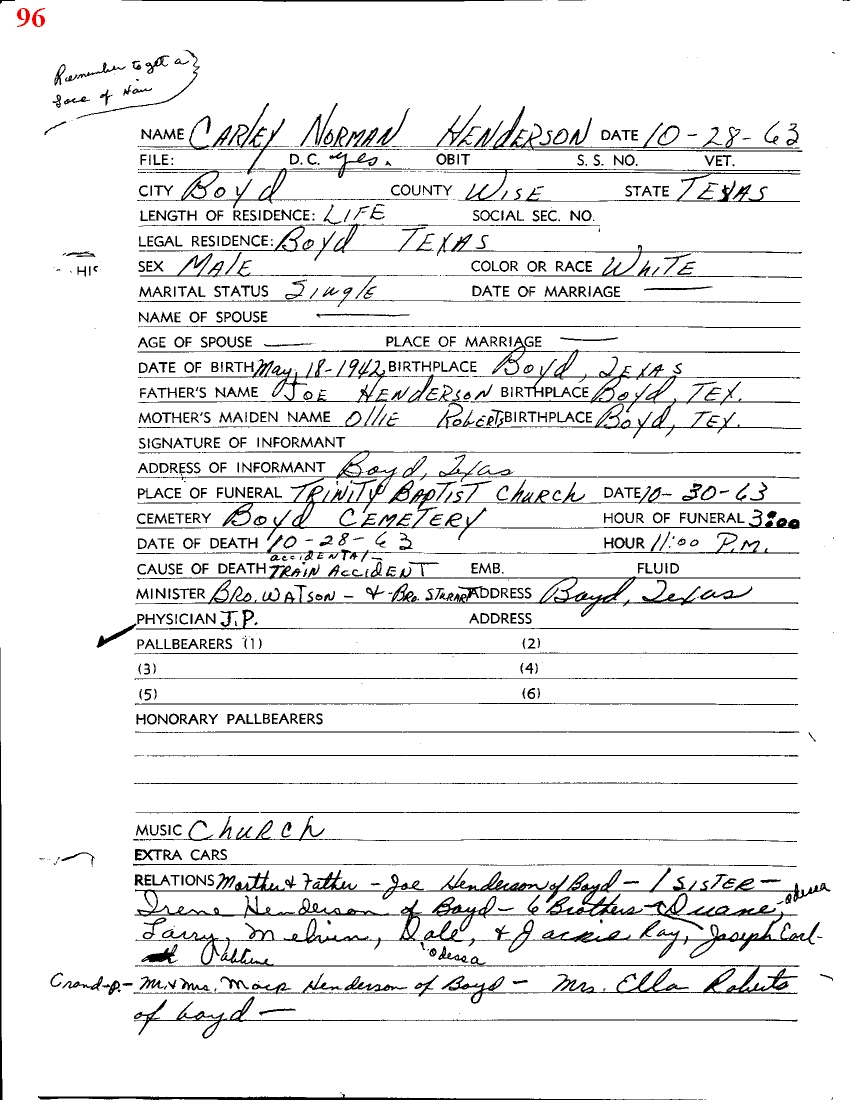 96
Remember to get a
of Hair
NAME CARLEY NORMAN HENDERSON DATE 10-28-63
FILE: D.C. yes. OBIT S. S. NO. VET.
CITY Boyd COUNTY WISE STATE TEXAS
LENGTH OF RESIDENCE: LIFE SOCIAL SEC. NO.
LEGAL RESIDENCE: Boyd TEXAS
SEX MALE COLOR OR RACE WHITE
MARITAL STATUS Single DATE OF MARRIAGE —
NAME OF SPOUSE —
AGE OF SPOUSE — PLACE OF MARRIAGE —
DATE OF BIRTH May, 18-1942 BIRTHPLACE Boyd, TEXAS
FATHER'S NAME JOE HENDERSON BIRTHPLACE Boyd, TEX.
MOTHER'S MAIDEN NAME OLLIE ROBERTS BIRTHPLACE Boyd, TEX.
SIGNATURE OF INFORMANT
ADDRESS OF INFORMANT Boyd, Texas
PLACE OF FUNERAL TRINITY BAPTIST Church DATE 10-30-63
CEMETERY Boyd CEMETERY HOUR OF FUNERAL 3:00
DATE OF DEATH 10-28-63 HOUR 11:00 P.M.
ACCIDENTAL -
CAUSE OF DEATH TRAIN ACCIDENT EMB. FLUID
MINISTER BRO. WATSON - & - BRO. ADDRESS Boyd, Texas
PHYSICIAN J.P. ADDRESS
PALLBEARERS (1) (2)
(3) (4)
(5) (6)
HONORARY PALLBEARERS
MUSIC Church
EXTRA CARS
RELATIONS Morther & Father - Joe Henderson of Boyd - 1 SISTER -
Irene Henderson of Boyd - 6 Brothers - Duane, - odessa
Larry, Melvin, Dale, & Jackie Ray, Joseph Carl -
odessa
Grand-p. - Mr. & Mrs. Henderson of Boyd - Mrs. Ella Roberts
of boyd -